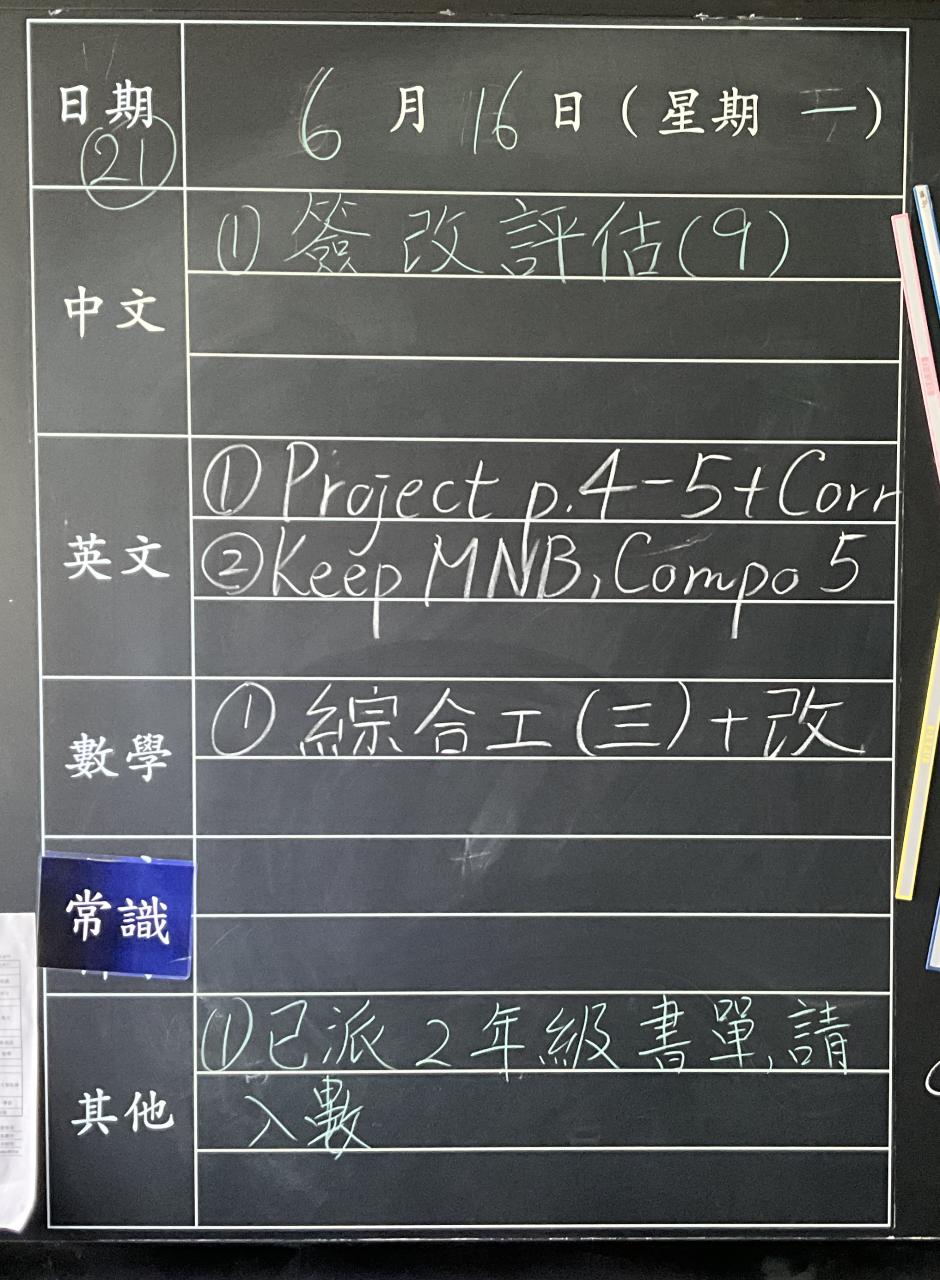 日期 6 月 16 日(星期 一)
21
中文
① 簽改評估(9)
英文
① Project p.4-5+Corr
② Keep MNB, Compo 5
數學
① 綜合工(三)+改
常識
其他
① 已派2年級書單,請
入數